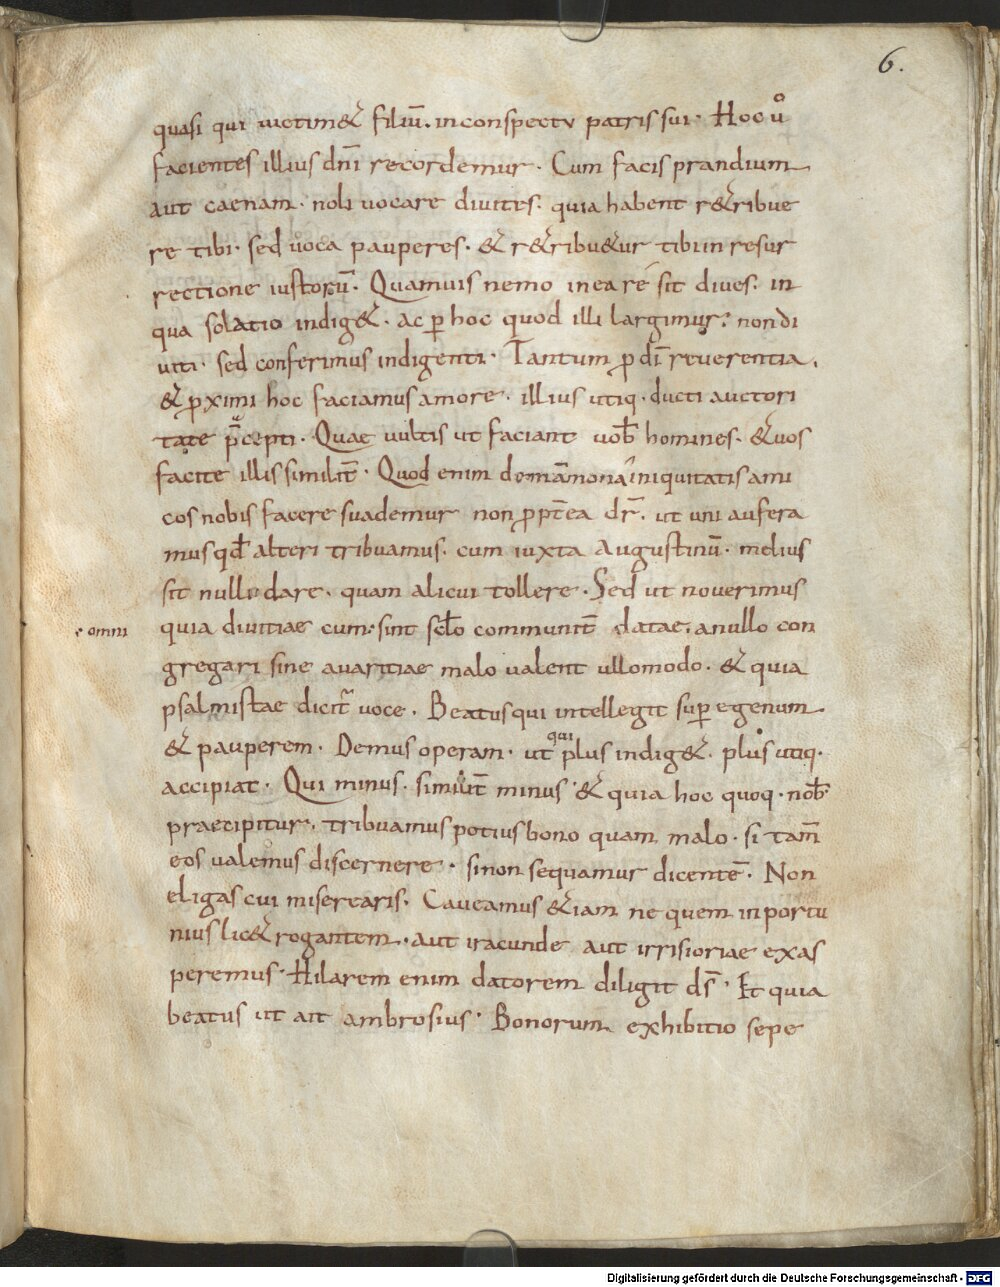 6.
quasi qui uictim& filiū. inconspectu patris sui. Hoc uͦ
facientes illius dnī recordemur. Cum facis prandium
aut caenam. noli uocare diuites. quia habent r&ribue
re tibi. sed uoca pauperes. & r&ribu&ur tibi in resur
rectione iustorū. Quamuis nemo in ea re sit diues. in
qua solatio indig&. ac p̄ hoc quod illi largimur; non di
uiti. sed conferimus indigenti. Tantum p dī reuerentia.
& pximi hoc faciamus amore. illius utiq. ducti auctori
tate p̄cepti. Quae uultis ut faciant uob̄ homines. & uos
facite illis similit̄. Quod enim de māmona iniquitatis ami
cos nobis facere suademur non ppt̄ea dr̄. ut uni aufera
mus qd̄ alteri tribuamus. cum iuxta Augustinū. melius
sit nulli dare. quam alicui tollere. Sed ut nouerimus
omni
quia diuitiae cum sint sclo communit̄ datae. a nullo con
gregari sine auaritiae malo ualent ullomodo. & quia
psalmistae dicit̄ uoce. Beatus qui intellegit sup egenum
& pauperem. Demus operam. ut qui plus indig&. plus utiq.
accipiat. Qui minus. similit̄ minus. & quia hoc quoq. nob̄
praecipitur. tribuamus potius bono quam malo. si tam̄
eos ualemus discernere. sinon sequamur dicentē. Non
eligas cui miserearis. Caueamus &iam ne quem inportu
nius lic& rogantem. aut iracunde aut irrisioriae exas
peremus. Hilarem enim datorem diligit ds̄. Et quia
beatus ut ait ambrosius. Bonorum exhibitio sepe
Digitalisierung gefördert durch die Deutsche Forschungsgemeinschaft - DFG